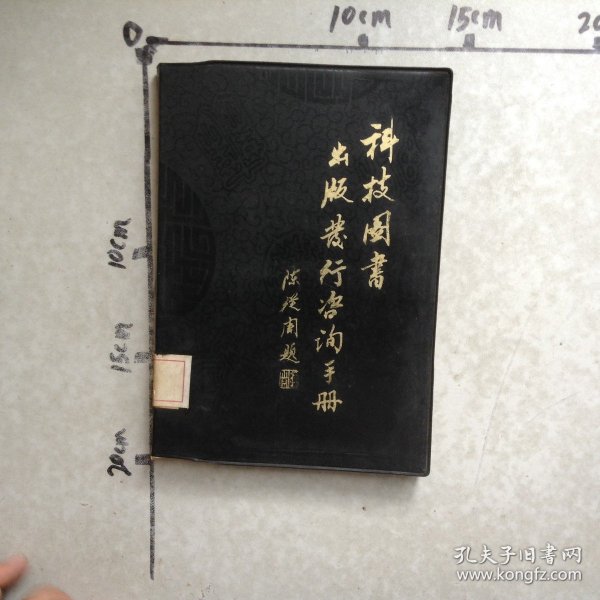 0
10cm
15cm
10cm
15cm
20cm
科技图書
出版发行咨询手册
陈从周题
孔夫子旧书网
www.kongfz.com